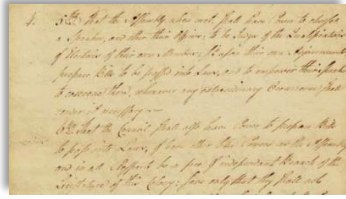 4. 5th. That the Assembly when met shall have Power to choose
a Speaker, and other their Officers; to be Judges of the Qualifications
& Elections of their own Members; sit upon their own Adjournments;
prepare Bills to be passed into Laws, and to empower their Speaker
to convene them, whenever any extraordinary Occurrence shall
render it necessary.
6th. That the Council shall also have Power to prepare Bills
to pass into Laws, & have other like Powers as the Assembly
and in all Respects be a free & independent Branch of the
Legislature of this Colony; save only that they shall not